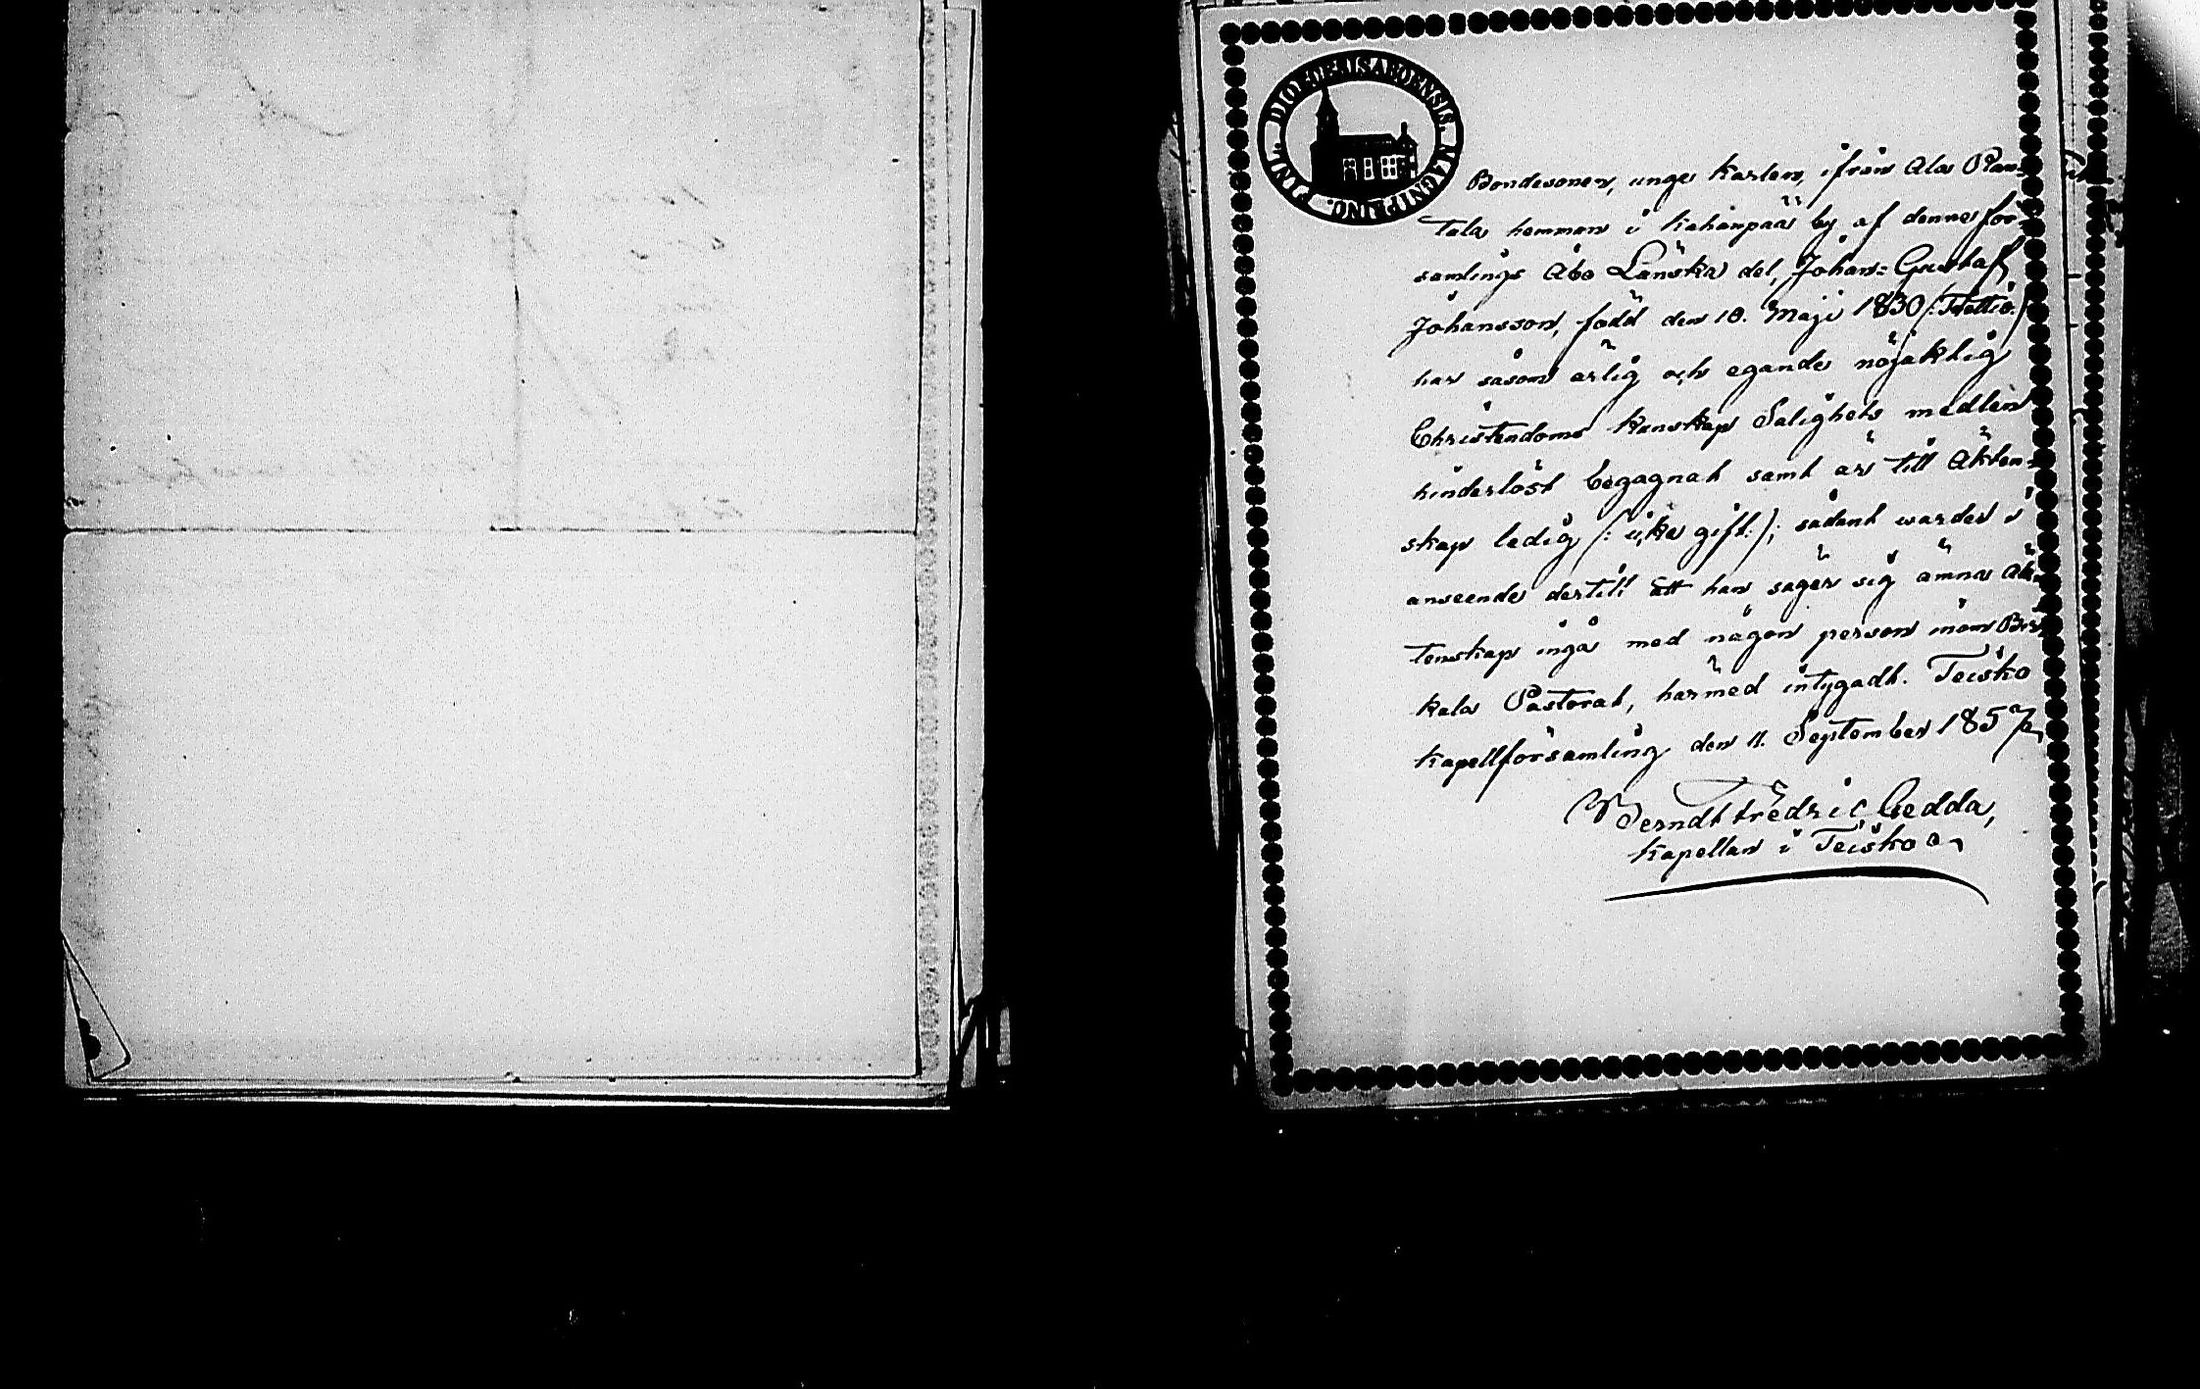 DIOECESIS ABOENSIS. MAGNI PRINC. FINL.
Bondesonen, unge karlen, ifrån Ala Ran-
tala hemman i Kahanpää by af denne för
samlings Åbo Länska del, Johan-Gustaf
Johansson, född den 10. Maji 1830 (:Trettio:)
har såsom ärlig och egande nöjaktig
Christendoms kunskap Salighets medlen
hinderlöst begagnat samt är till Äkten-
skap ledig (: icke gift:); sådant warder i
anseende dertill att han säger sig ämna Äk-
tenskap ingå med någon person inom Bir
kala Pastorat, härmed intygadt. Teisko
Kapellförsamling den 11. September 1857
Berndt Fredric Gedda,
Kapellan i Teisko